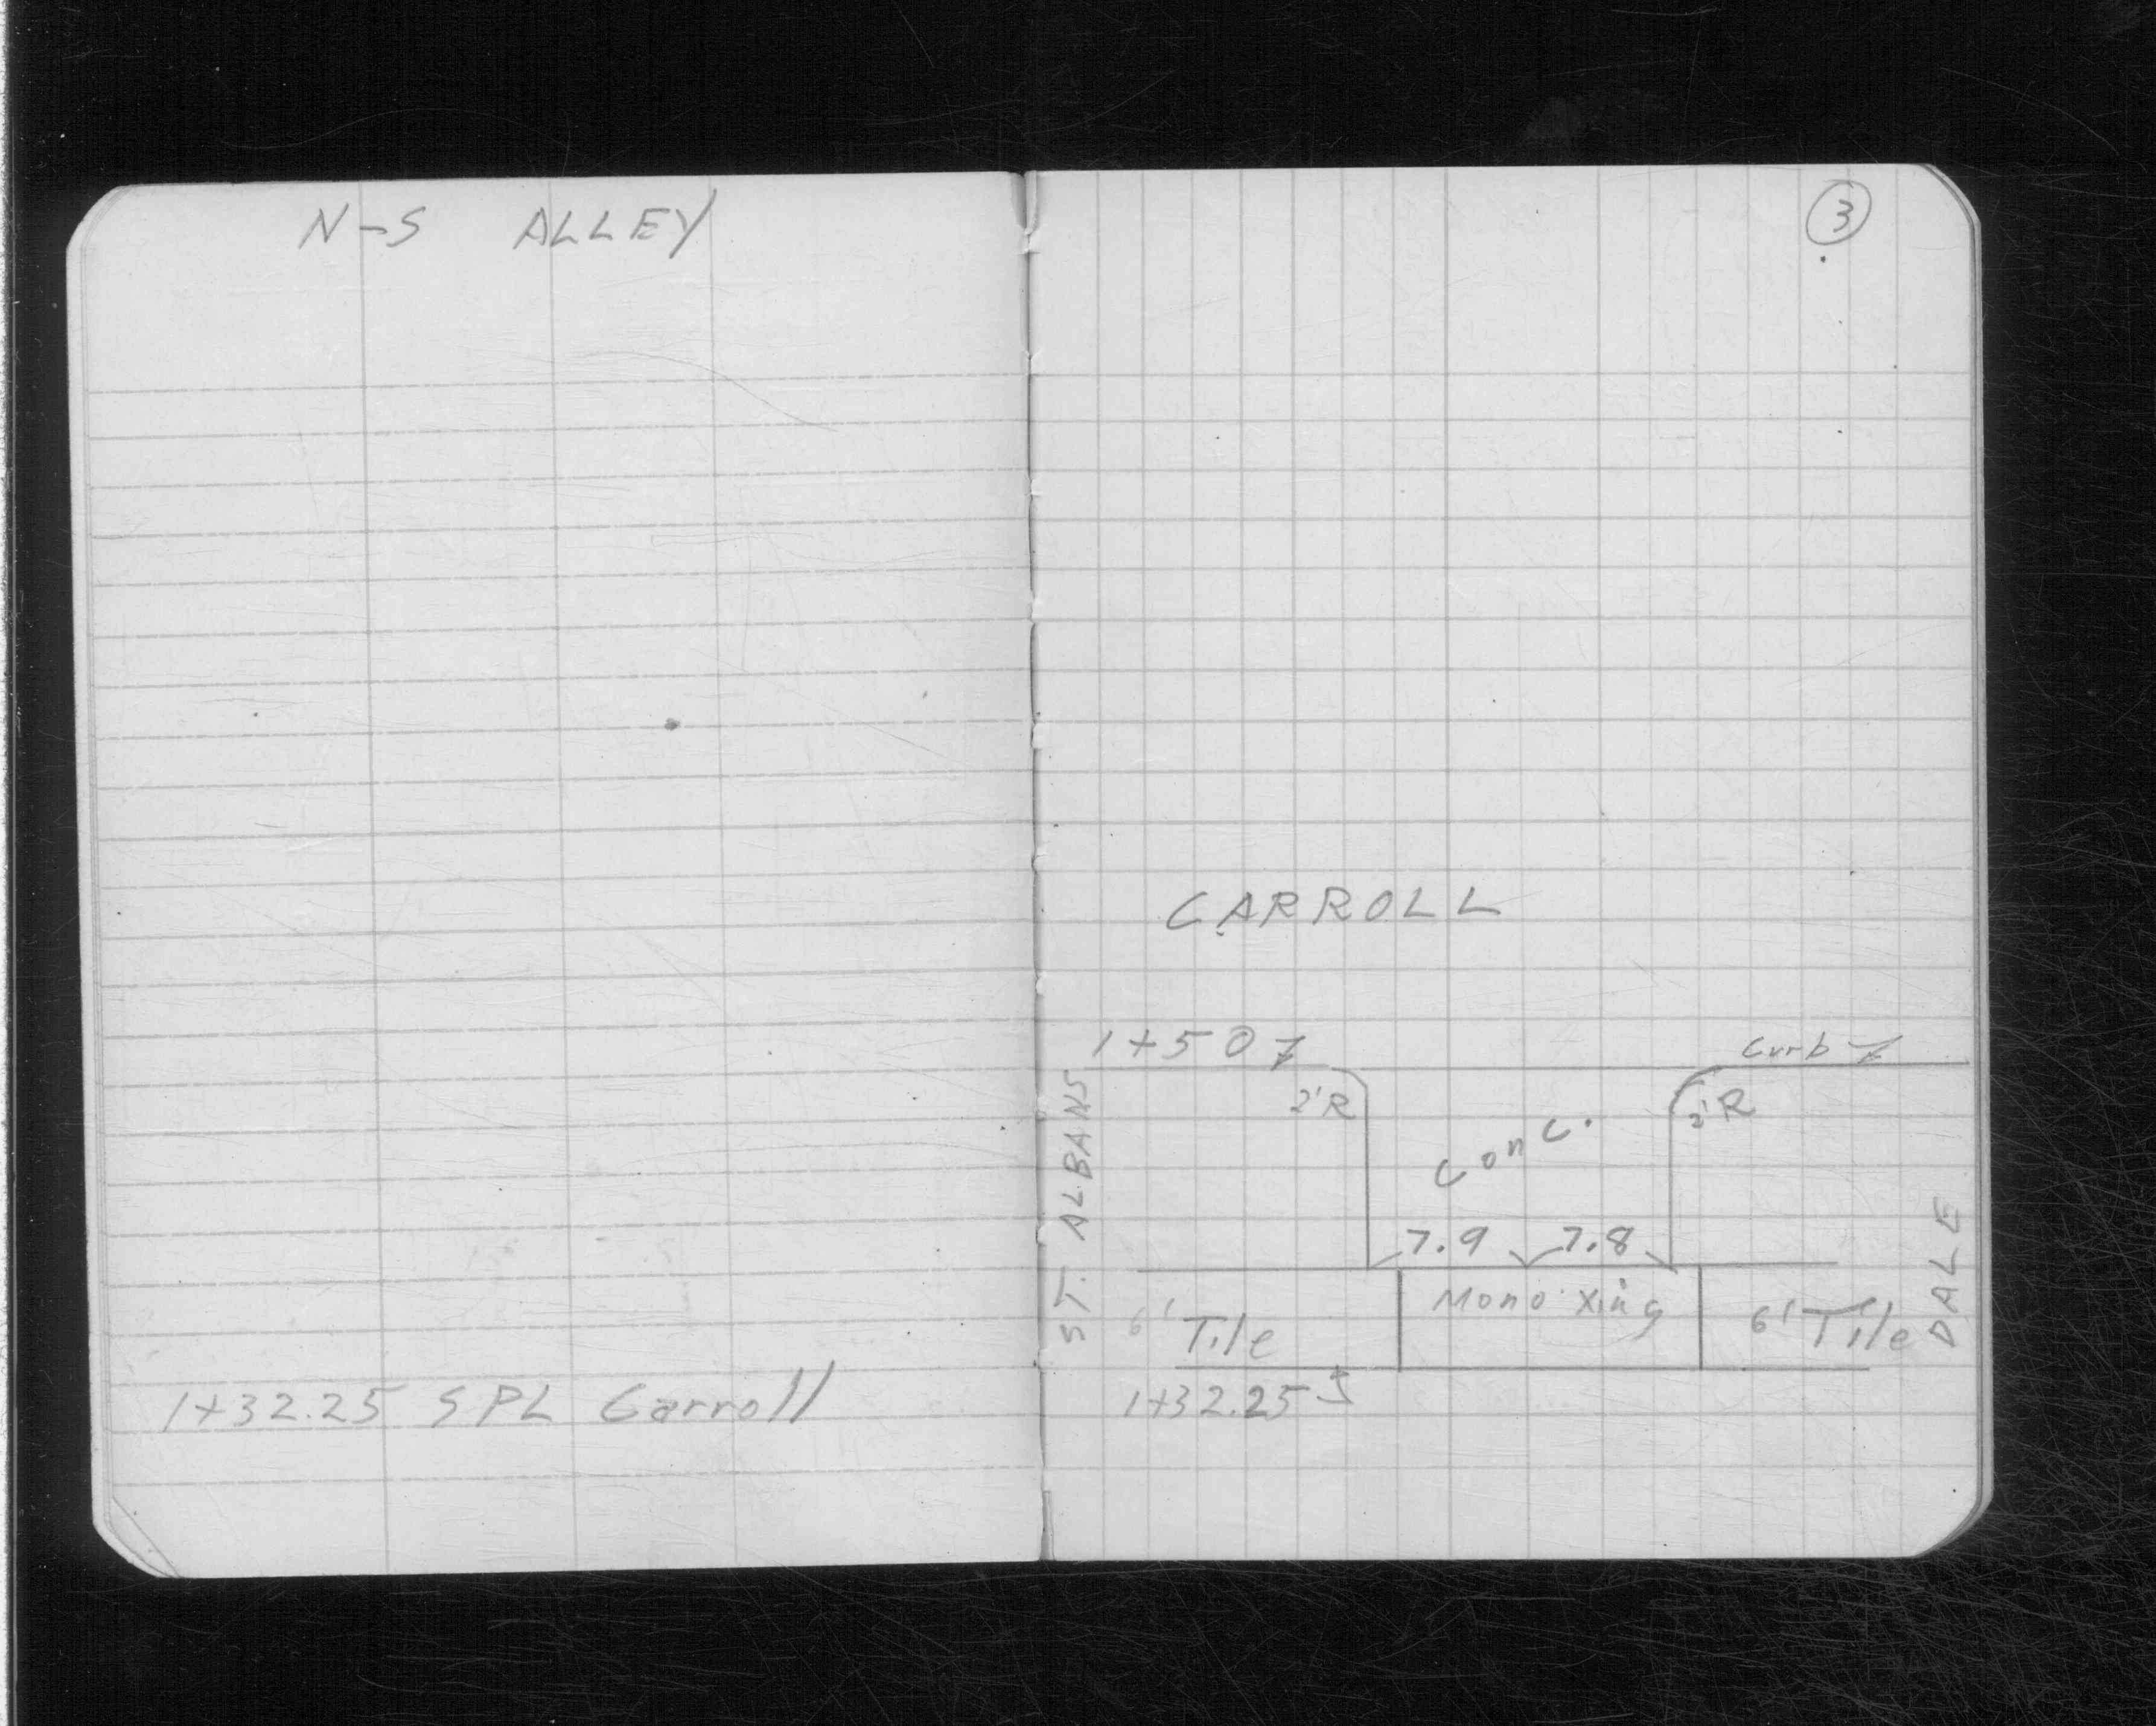 N-S ALLEY
1+32.25 SPL Carroll
3
CARROLL
1+50
Curb
2'R
2'R
Conc.
ST. ALBANS
7.9 7.8
DALE
Mono Xing
6' Tile
6' Tile
1+32.25